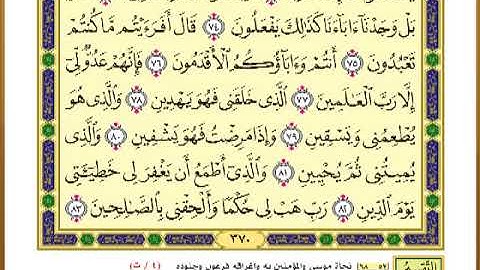 بَلْ وَجَدْنَآ ءَابَآءَنَا كَذَٰلِكَ يَفْعَلُونَ ٧٤ قَالَ أَفَرَءَيْتُم مَّا كُنتُمْ
تَعْبُدُونَ ٧٥ أَنتُمْ وَءَابَآؤُكُمُ ٱلْأَقْدَمُونَ ٧٦ فَإِنَّهُمْ عَدُوٌّ لِّىٓ
إِلَّا رَبَّ ٱلْعَٰلَمِينَ ٧٧ ٱلَّذِى خَلَقَنِى فَهُوَ يَهْدِينِ ٧٨ وَٱلَّذِى هُوَ
يُطْعِمُنِى وَيَسْقِينِ ٧٩ وَإِذَا مَرِضْتُ فَهُوَ يَشْفِينِ ٨٠ وَٱلَّذِى
يُمِيتُنِى ثُمَّ يُحْيِينِ ٨١ وَٱلَّذِىٓ أَطْمَعُ أَن يَغْفِرَ لِى خَطِيٓـَٔتِى
يَوْمَ ٱلدِّينِ ٨٢ رَبِّ هَبْ لِى حُكْمًا وَأَلْحِقْنِى بِٱلصَّٰلِحِينَ ٨٣
٣٧٠
٥٢ ٦٨ نجاة موسى والمؤمنين به وإغراقه فرعون وجنوده (٤ / ت)